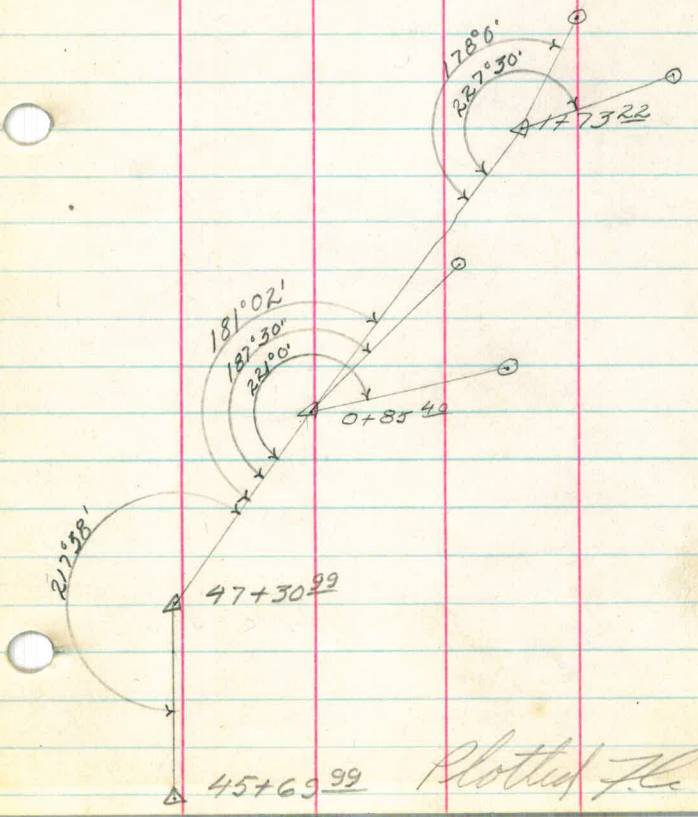 178°0'
227°30'
1+73 22
181°02'
187°30'
221°0'
0+85 40
217°38'
47+30 99
45+69 99
Plotted